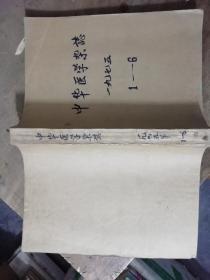 中华医学杂志
一九七五
1—6
中华医学杂志
一九七五年
1-6